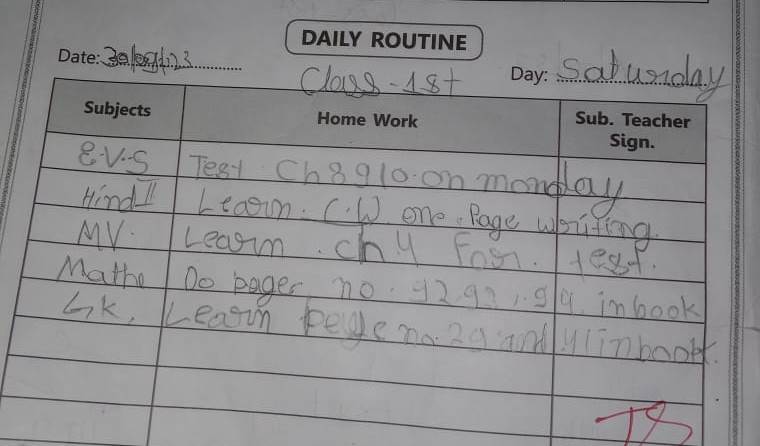 DAILY ROUTINE
Date: 30/09/23 Day: Saturday
Class - 1st
Subjects Home Work Sub. Teacher Sign.
E.V.S Test Ch 8 9 10. on monday
Hind II Learn. C.W one. Page writing.
MV. Learn. ch 4 For. test.
Mathe Do pages no. 92, 93, 94. in book
G.k, Learn page no. 29 and 41 in book.
TS